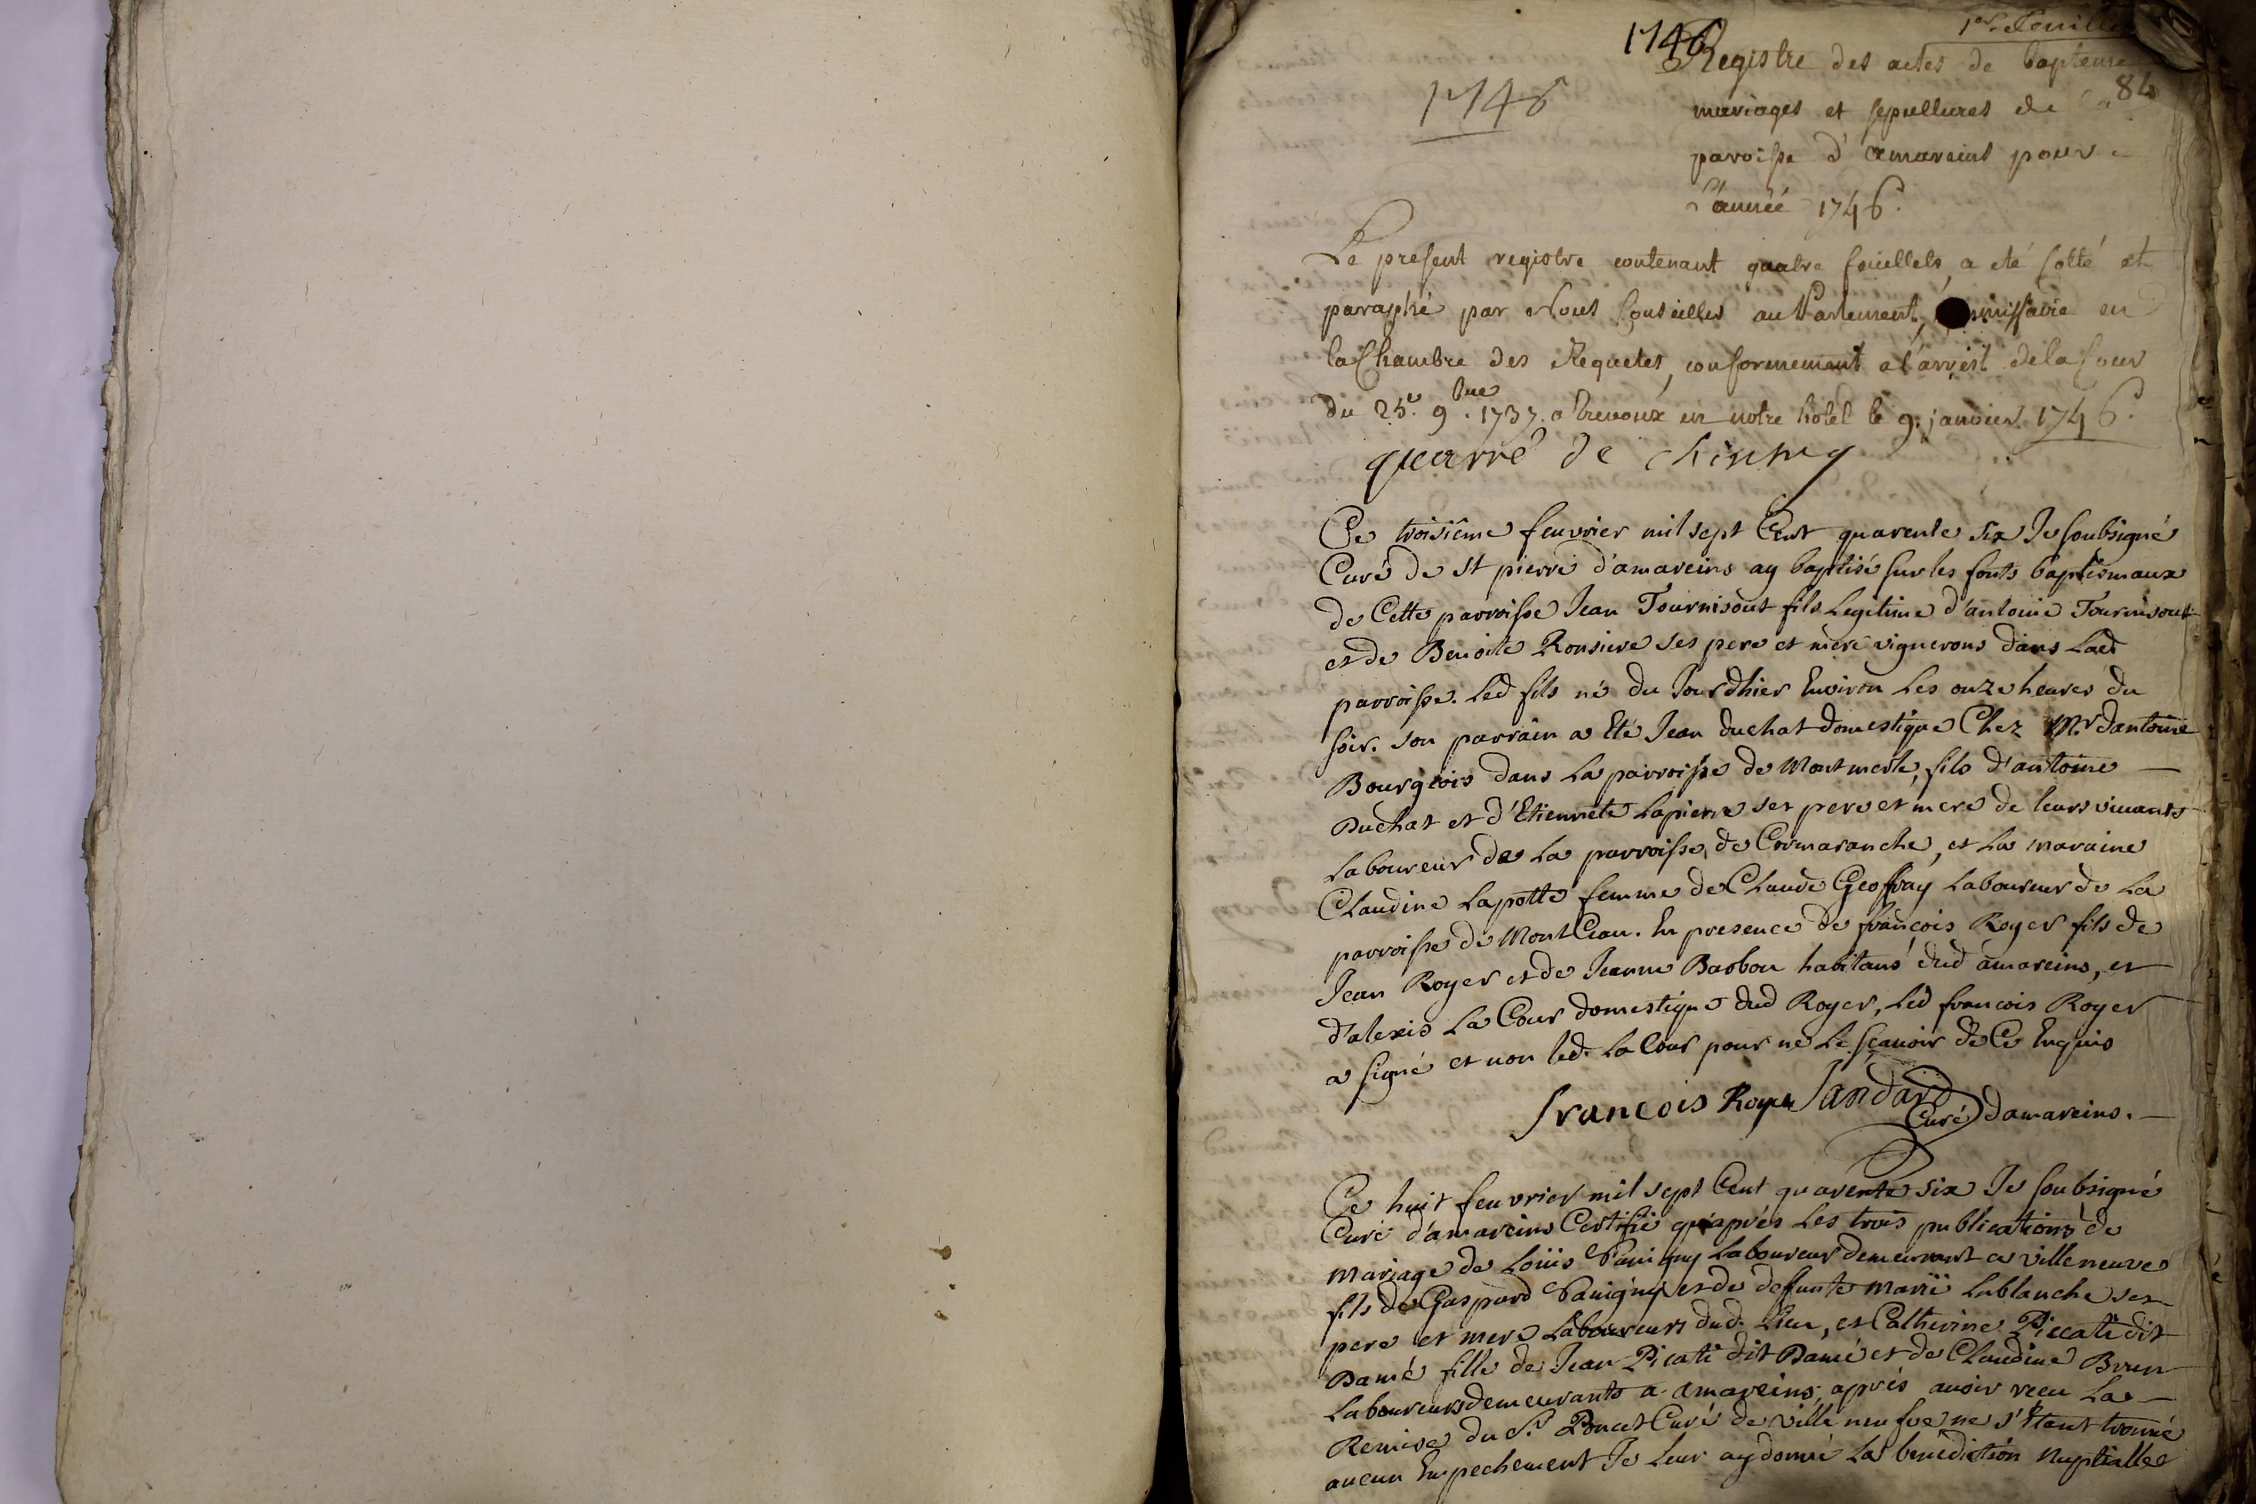 1746
1er feuillet
Registre des actes de bapteme
84
1746
mariages et sepultures de la
paroisse d'amareins pour
L'année 1746.
Le present registre contenant quatre feuillets, a été cotté et
paraphé par Nous Conseiller au Parlement, missaire en
la Chambre des Requetes, conformement a l'arrest de la Cour
du 25e. 9bre. 1737. a Trevoux en notre hotel le 9. janvier 1746.
quarré de
Ce troisiême feuvrier mil sept Cent quarente six Je soubsigné
Curé de st pierre d'amareins ay baptisé sur les fonts baptismaux
de Cette parroisse Jean Tournisout fils Legitime d'antoine Tournisout
et de Benoite Ronsiere ses pere et mere vignerons dans Lad
parroisse. led fils né du Jourdhier Environ Les onze heures du
soir. son parrain a Eté Jean duchat domestique Chez Mr. dantoine
Bourgeois dans La parroisse de Montmerle, fils d'antoine
Duchat et d'Etiennete Lapierre ses pere et mere de leurs vivants
Laboureur de La parroisse de Cormaranche, et La maraine
Claudine Lapotte femme de Claude Geoffray Laboureur de La
parroisse de MontCeau. En presence de françois Royer fils de
Jean Royer et de Jeanne Barbou habitans dud amareins, et
d'alexis La Cour domestique dud Royer, Led francois Royer
a signé et non led. La Cour pour ne Le sçauoir de Ce Enquis
francois Royer Jandard
Curé damareins.
Ce huit feuvrier mil sept Cent quarente six Je soubsigné
Curé d'amareins Certifie qu'aprés Les trois publications de
Mariage de Loüis Pauigny Laboureur demeurant a villeneuve
fils de Gaspard Pauigny et de deffunte marie Lablanche ses
pere et mere Laboureurs dud. Lieu, et Catherine Piccati dit
Damé fille de Jean Picati dit Damé et de Claudine Brun
Laboureurs demeurants a amareins, aprés auoir receu La
Remise du Sr. Poncet Curé de villeneufve ne s'Etant trouvé
aucun Empechement Je Leur ay donné La benediction Nuptialle